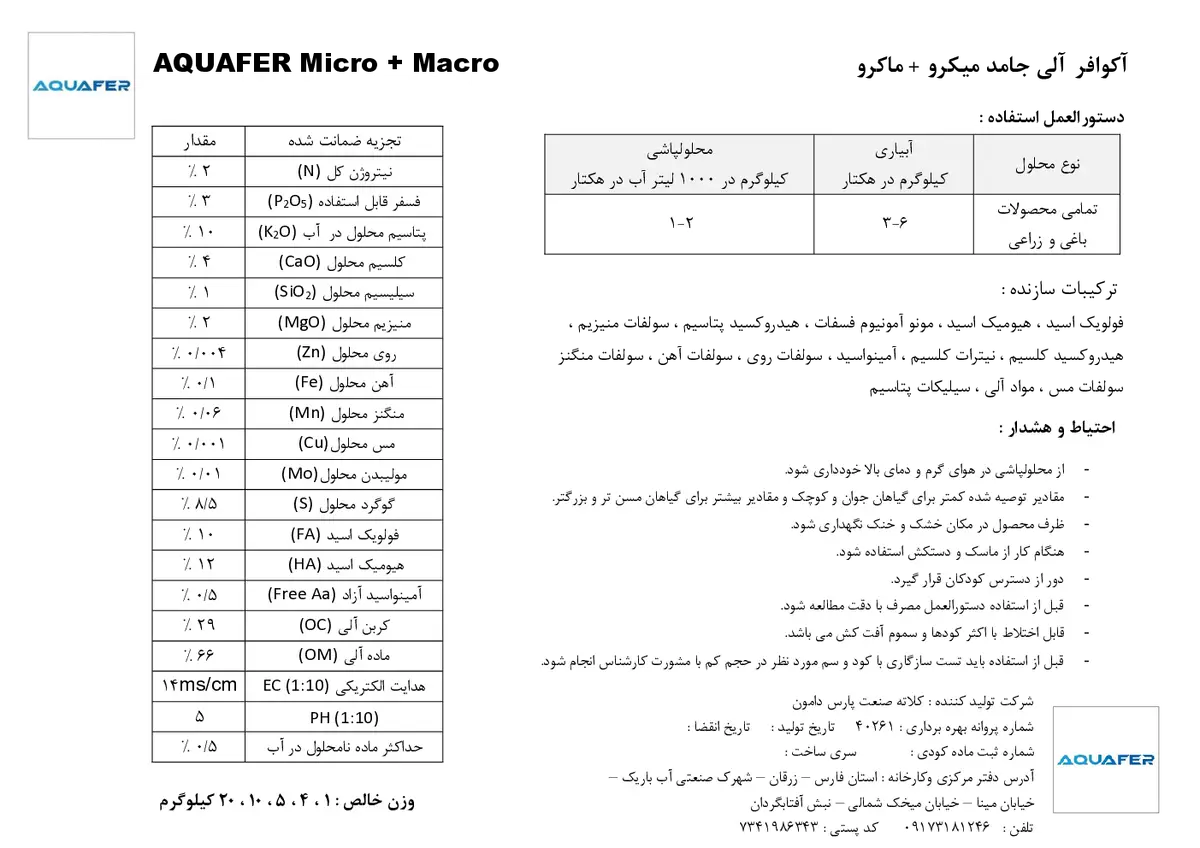 AQUAFER
AQUAFER Micro + Macro
آکوافر آلی جامد میکرو + ماکرو
دستورالعمل استفاده :
نوع محلول | آبیاری کیلوگرم در هکتار | محلولپاشی کیلوگرم در ۱۰۰۰ لیتر آب در هکتار
تمامی محصولات باغی و زراعی | ۳-۶ | ۱-۲
ترکیبات سازنده :
فولویک اسید ، هیومیک اسید ، مونو آمونیوم فسفات ، هیدروکسید پتاسیم ، سولفات منیزیم ،
هیدروکسید کلسیم ، نیترات کلسیم ، آمینواسید ، سولفات روی ، سولفات آهن ، سولفات منگنز
سولفات مس ، مواد آلی ، سیلیکات پتاسیم
احتیاط و هشدار :
- از محلولپاشی در هوای گرم و دمای بالا خودداری شود.
- مقادیر توصیه شده کمتر برای گیاهان جوان و کوچک و مقادیر بیشتر برای گیاهان مسن تر و بزرگتر.
- ظرف محصول در مکان خشک و خنک نگهداری شود.
- هنگام کار از ماسک و دستکش استفاده شود.
- دور از دسترس کودکان قرار گیرد.
- قبل از استفاده دستورالعمل مصرف با دقت مطالعه شود.
- قابل اختلاط با اکثر کودها و سموم آفت کش می باشد.
- قبل از استفاده باید تست سازگاری با کود و سم مورد نظر در حجم کم با مشورت کارشناس انجام شود.
شرکت تولید کننده : کلاته صنعت پارس دامون
شماره پروانه بهره برداری : ۴۰۲۶۱ تاریخ تولید : تاریخ انقضا :
شماره ثبت ماده کودی : سری ساخت :
آدرس دفتر مرکزی وکارخانه : استان فارس – زرقان – شهرک صنعتی آب باریک –
خیابان مینا – خیابان میخک شمالی – نبش آفتابگردان
تلفن : ۰۹۱۷۳۱۸۱۲۴۶ کد پستی : ۷۳۴۱۹۸۶۳۴۳
AQUAFER
تجزیه ضمانت شده | مقدار
نیتروژن کل (N) | ۲ ٪
فسفر قابل استفاده (P₂O₅) | ۳ ٪
پتاسیم محلول در آب (K₂O) | ۱۰ ٪
کلسیم محلول (CaO) | ۴ ٪
سیلیسیم محلول (SiO₂) | ۱ ٪
منیزیم محلول (MgO) | ۲ ٪
روی محلول (Zn) | ۰/۰۰۴ ٪
آهن محلول (Fe) | ۰/۱ ٪
منگنز محلول (Mn) | ۰/۰۶ ٪
مس محلول(Cu) | ۰/۰۰۱ ٪
مولیبدن محلول(Mo) | ۰/۰۱ ٪
گوگرد محلول (S) | ۸/۵ ٪
فولویک اسید (FA) | ۱۰ ٪
هیومیک اسید (HA) | ۱۲ ٪
آمینواسید آزاد (Free Aa) | ۰/۵ ٪
کربن آلی (OC) | ۲۹ ٪
ماده آلی (OM) | ۶۶ ٪
هدایت الکتریکی EC (1:10) | ۱۴ms/cm
PH (1:10) | ۵
حداکثر ماده نامحلول در آب | ۰/۵ ٪
وزن خالص : ۱ ، ۴ ، ۵ ، ۱۰ ، ۲۰ کیلوگرم